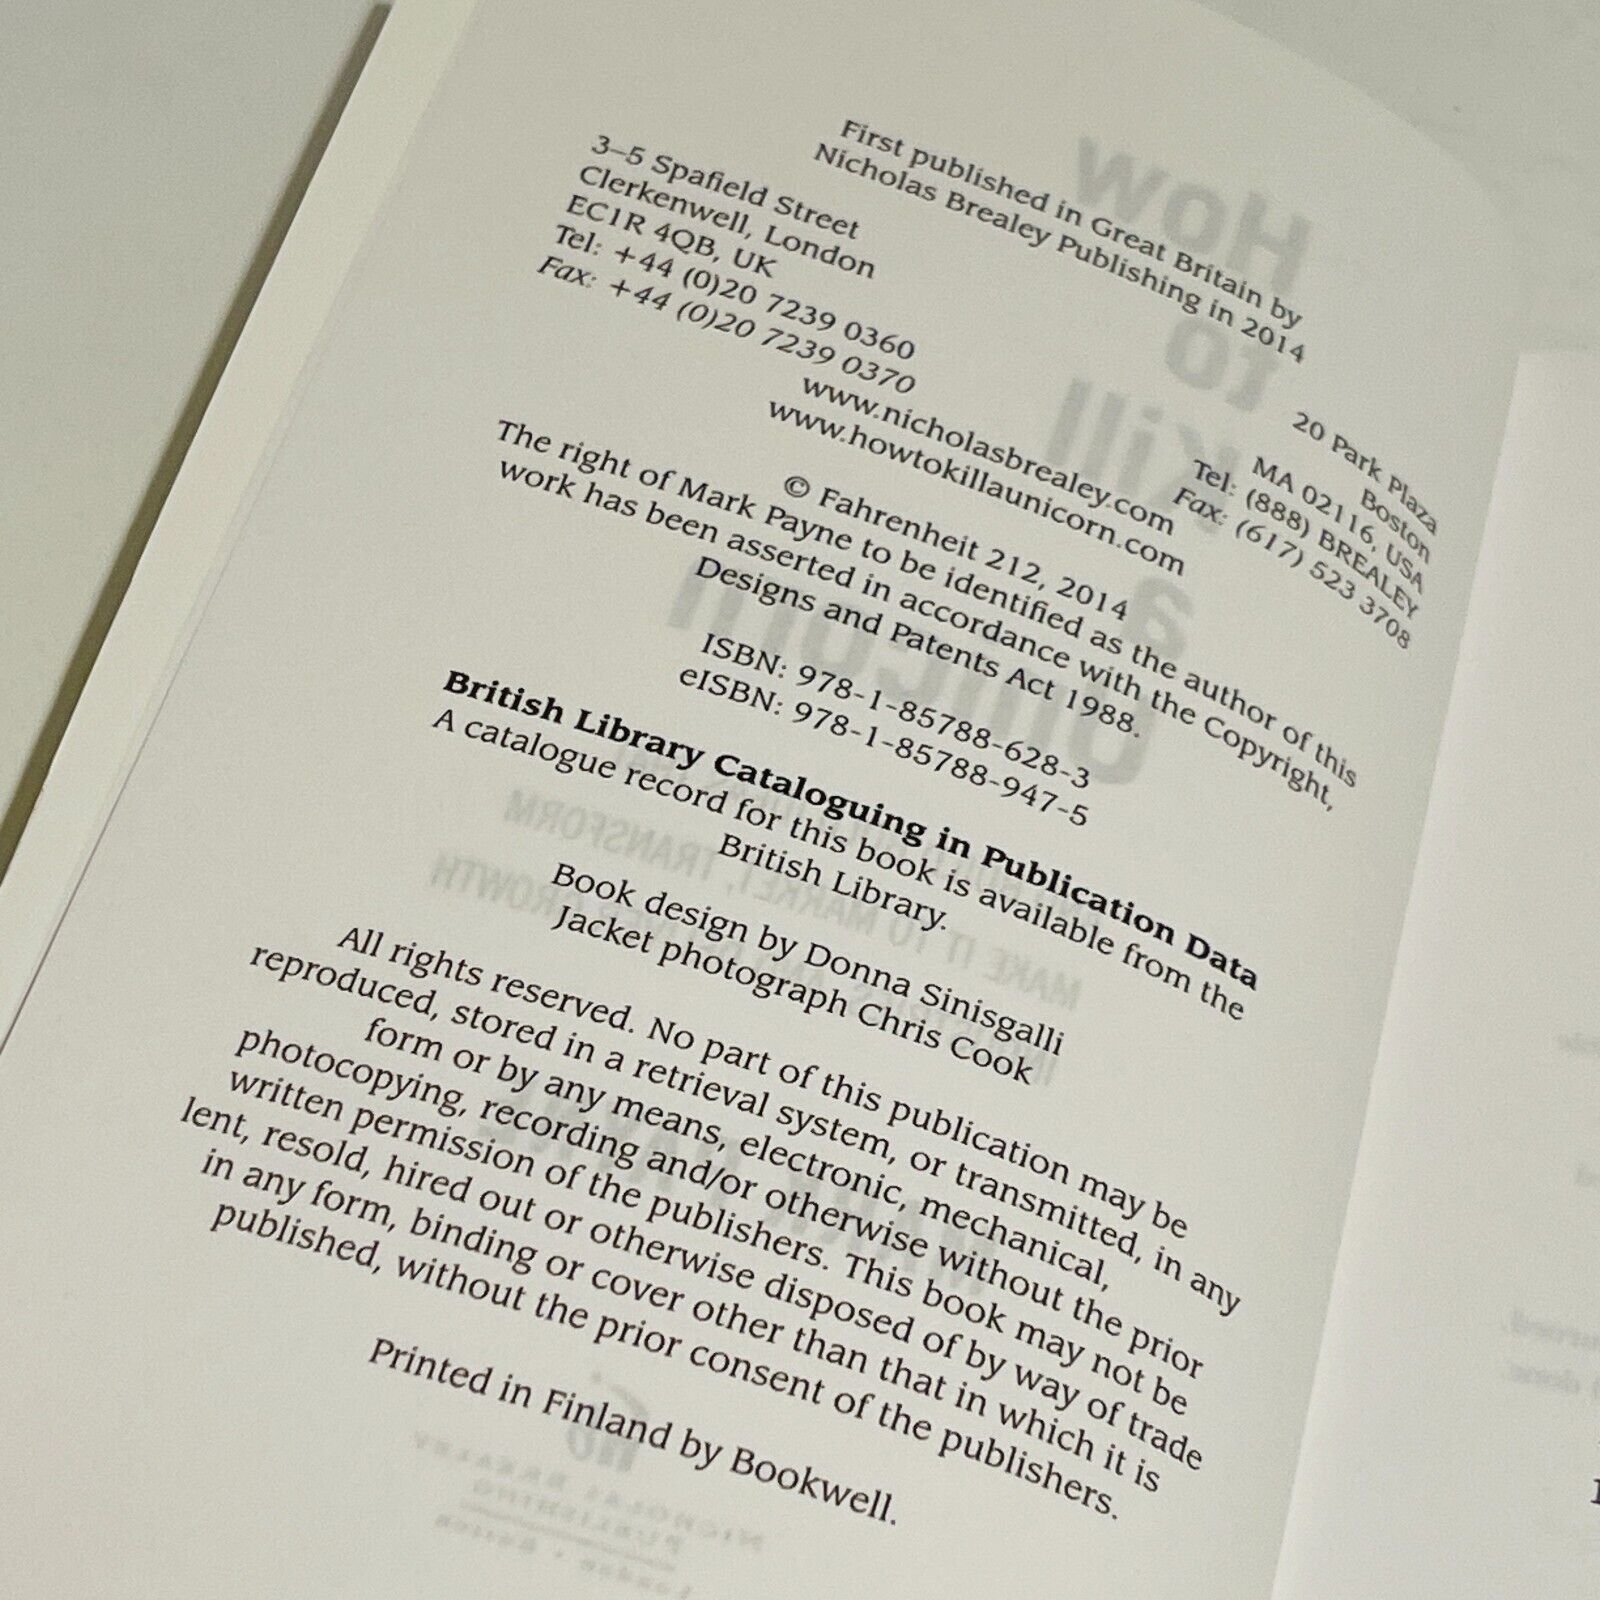 First published in Great Britain by
Nicholas Brealey Publishing in 2014
3–5 Spafield Street
Clerkenwell, London
EC1R 4QB, UK
Tel: +44 (0)20 7239 0360
Fax: +44 (0)20 7239 0370
20 Park Plaza
Boston
MA 02116, USA
Tel: (888) BREALEY
Fax: (617) 523 3708
www.nicholasbrealey.com
www.howtokillaunicorn.com
© Fahrenheit 212, 2014
The right of Mark Payne to be identified as the author of this
work has been asserted in accordance with the Copyright,
Designs and Patents Act 1988.
ISBN: 978-1-85788-628-3
eISBN: 978-1-85788-947-5
British Library Cataloguing in Publication Data
A catalogue record for this book is available from the
British Library.
Book design by Donna Sinisgalli
Jacket photograph Chris Cook
All rights reserved. No part of this publication may be
reproduced, stored in a retrieval system, or transmitted, in any
form or by any means, electronic, mechanical,
photocopying, recording and/or otherwise without the prior
written permission of the publishers. This book may not be
lent, resold, hired out or otherwise disposed of by way of trade
in any form, binding or cover other than that in which it is
published, without the prior consent of the publishers.
Printed in Finland by Bookwell.
How
to
Kill
a
Unicorn
MAKE IT TO MARKET, TRANSFORM
NICHOLAS BREALEY
PUBLISHING
London • Boston